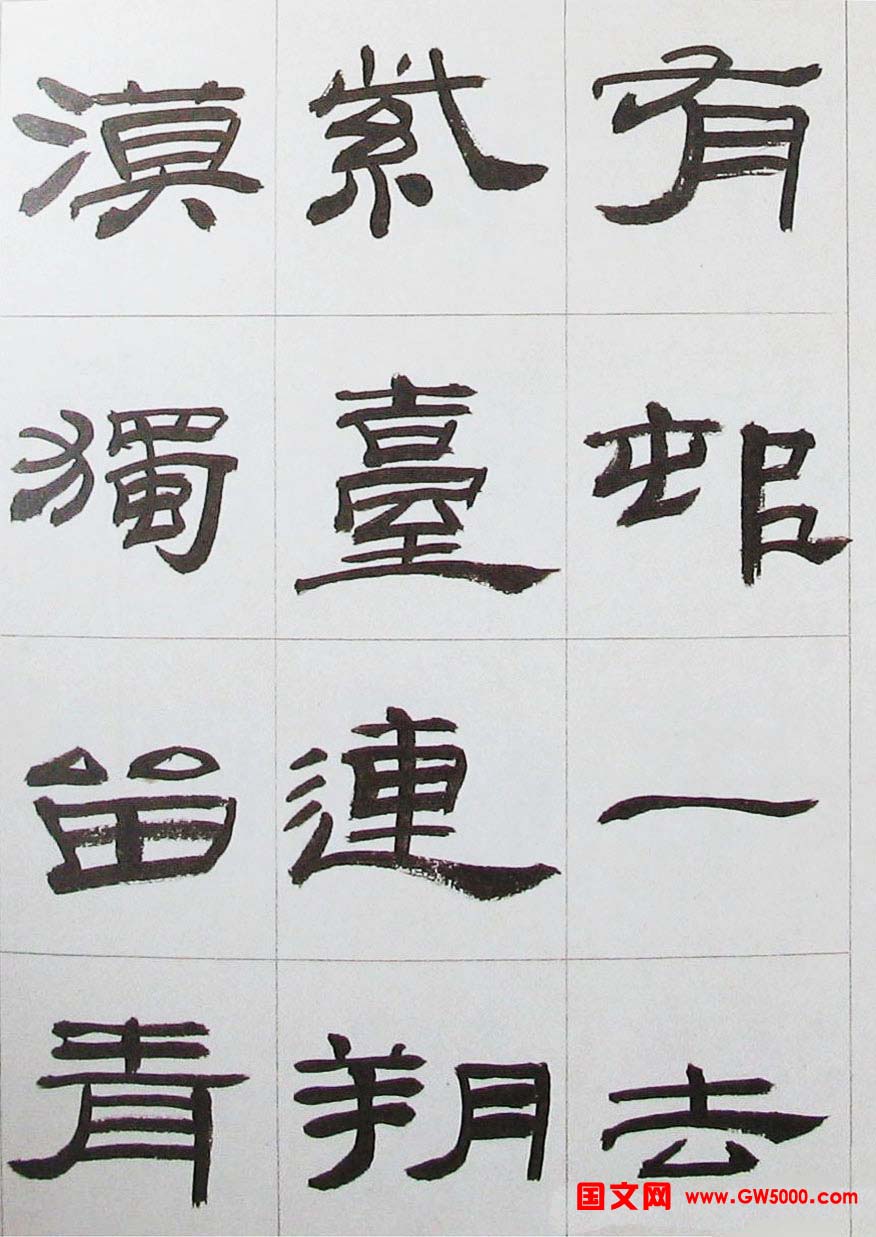 有邨一去
紫臺連朔
漠獨留青
国文网 www.GW5000.com